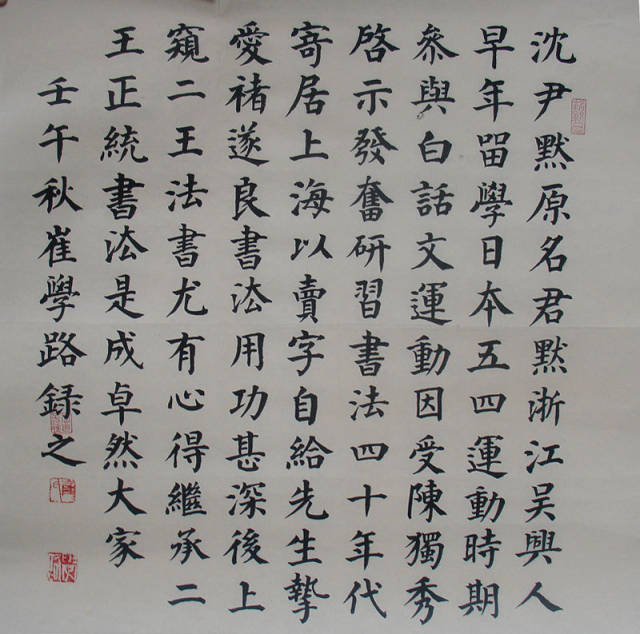 沈尹默原名君默浙江吴興人
早年留學日本五四運動時期
叅與白話文運動因受陳獨秀
啓示發奮研習書法四十年代
寄居上海以賣字自給先生摯
愛褚遂良書法用功甚深後上
窺二王法書尤有心得繼承二
王正統書法是成卓然大家
壬午秋崔學路錄之